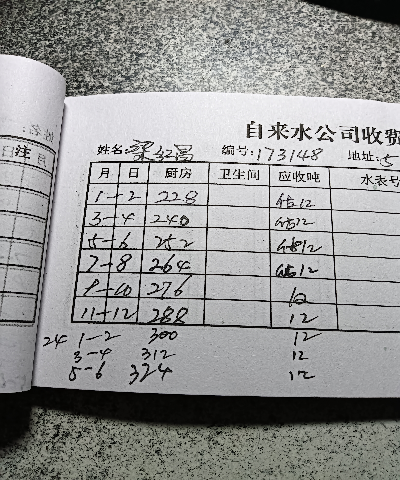 自来水公司收费
姓名: 梁红昌 编号: 173148 地址: 5
月 日 厨房 卫生间 应收吨 水表号
1-2 228 12
3-4 240 12
5-6 252 12
7-8 264 12
9-10 276 12
11-12 288 12
24 1-2 300 12
3-4 312 12
5-6 324 12
注